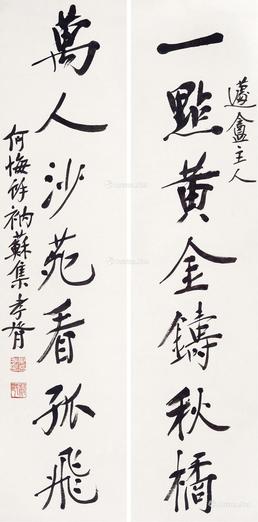 一點黃金鑄秋橘
萬人沙苑看孤飛
盦主人
何悔餘衲蘇集孝胥